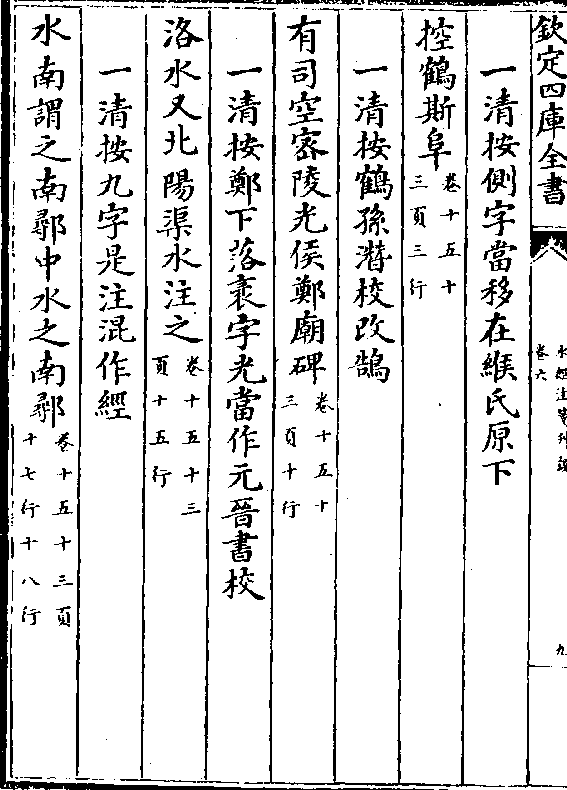 欽定四庫全書
水經注箋刊誤
卷六
九
一清按側字當移在緱氏原下
控鶴斯阜卷十五十三頁三行
一清按鶴孫潛校改鵠
有司空密陵光侯鄭廟碑卷十五十三頁十行
一清按鄭下落袤字光當作元晉書校
洛水又北陽渠水注之卷十五十三頁十五行
一清按九字是注混作經
水南謂之南鄩中水之南鄩卷十五十三頁十七行十八行